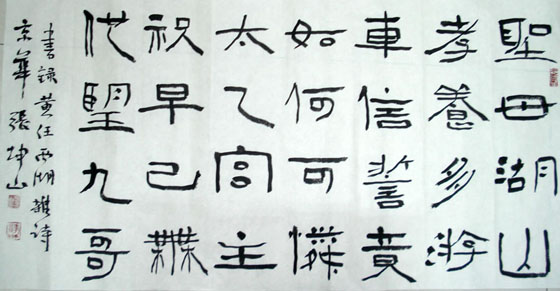 聖母湖山
孝養多游
車信誓
如何可憐
太乙宫主
祝早已無
代望九哥
書錄黄任西湖雜詩
京華張坤山